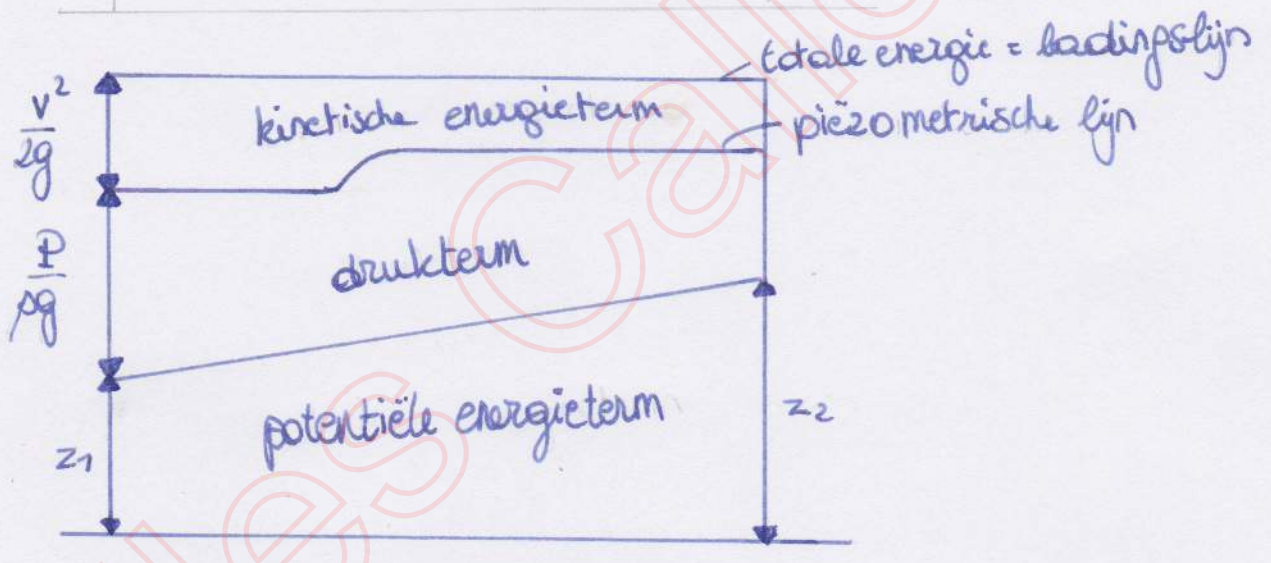 totale energie = ladingslijn
v²/2g
kinetische energieterm
piëzometrische lijn
P/ρg
drukterm
potentiële energieterm
z₁
z₂